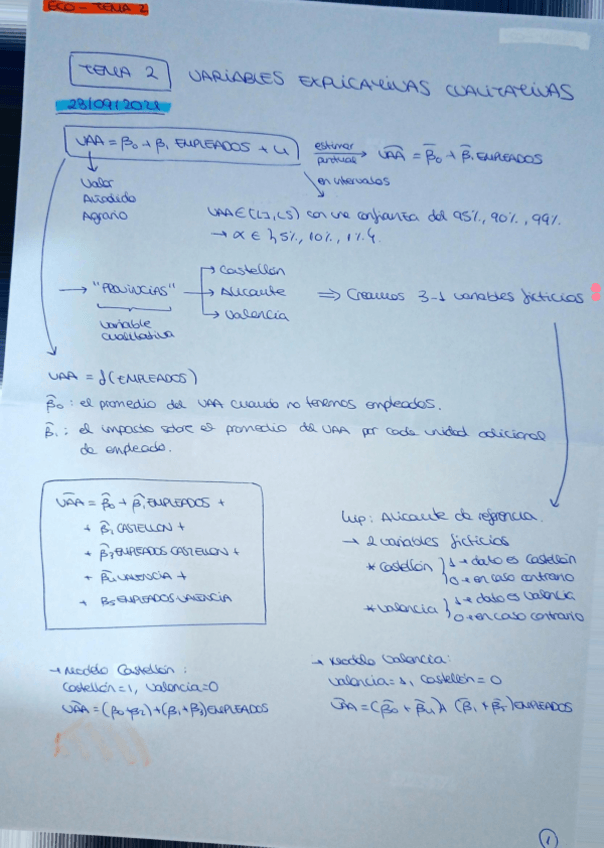 ECO - TEMA 2
TEMA 2 VARIABLES EXPLICATIVAS CUALITATIVAS
23/09/2021
VAA = β₀ + β₁ EMPLEADOS + u
estimar puntual → V̂AA = β̂₀ + β̂₁ EMPLEADOS
Valor
Añadido
Agrario
en intervalos
VAA ∈ (LI, LS) con una confianza del 95%, 90%, 99%.
→ α ∈ {5%, 10%, 1%}.
→ "PROVINCIAS"
variable
cualitativa
→ Castellón
→ Alicante
→ Valencia
⇒ Creamos 3-1 variables ficticias
VAA = f(EMPLEADOS)
β̂₀: el promedio del VAA cuando no tenemos empleados.
β̂₁: el impacto sobre el promedio del VAA por cada unidad adicional
de empleado.
V̂AA = β̂₀ + β̂₁ EMPLEADOS +
+ β̂₂ CASTELLON +
+ β̂₃ EMPLEADOS CASTELLON +
+ β̂₄ VALENCIA +
+ β₅ EMPLEADOS VALENCIA
Alicante de referencia.
→ 2 variables ficticias
* Castellón } 1 → dato es Castellón
0 → en caso contrario
* Valencia } 1 → dato es Valencia
0 → en caso contrario
→ Modelo Castellón:
Castellón = 1, Valencia = 0
V̂AA = (β₀+β₂) + (β₁+β₃) EMPLEADOS
→ Modelo Valencia:
Valencia = 1, Castellón = 0
V̂AA = (β̂₀ + β̂₄) + (β̂₁ + β̂₅) EMPLEADOS
1